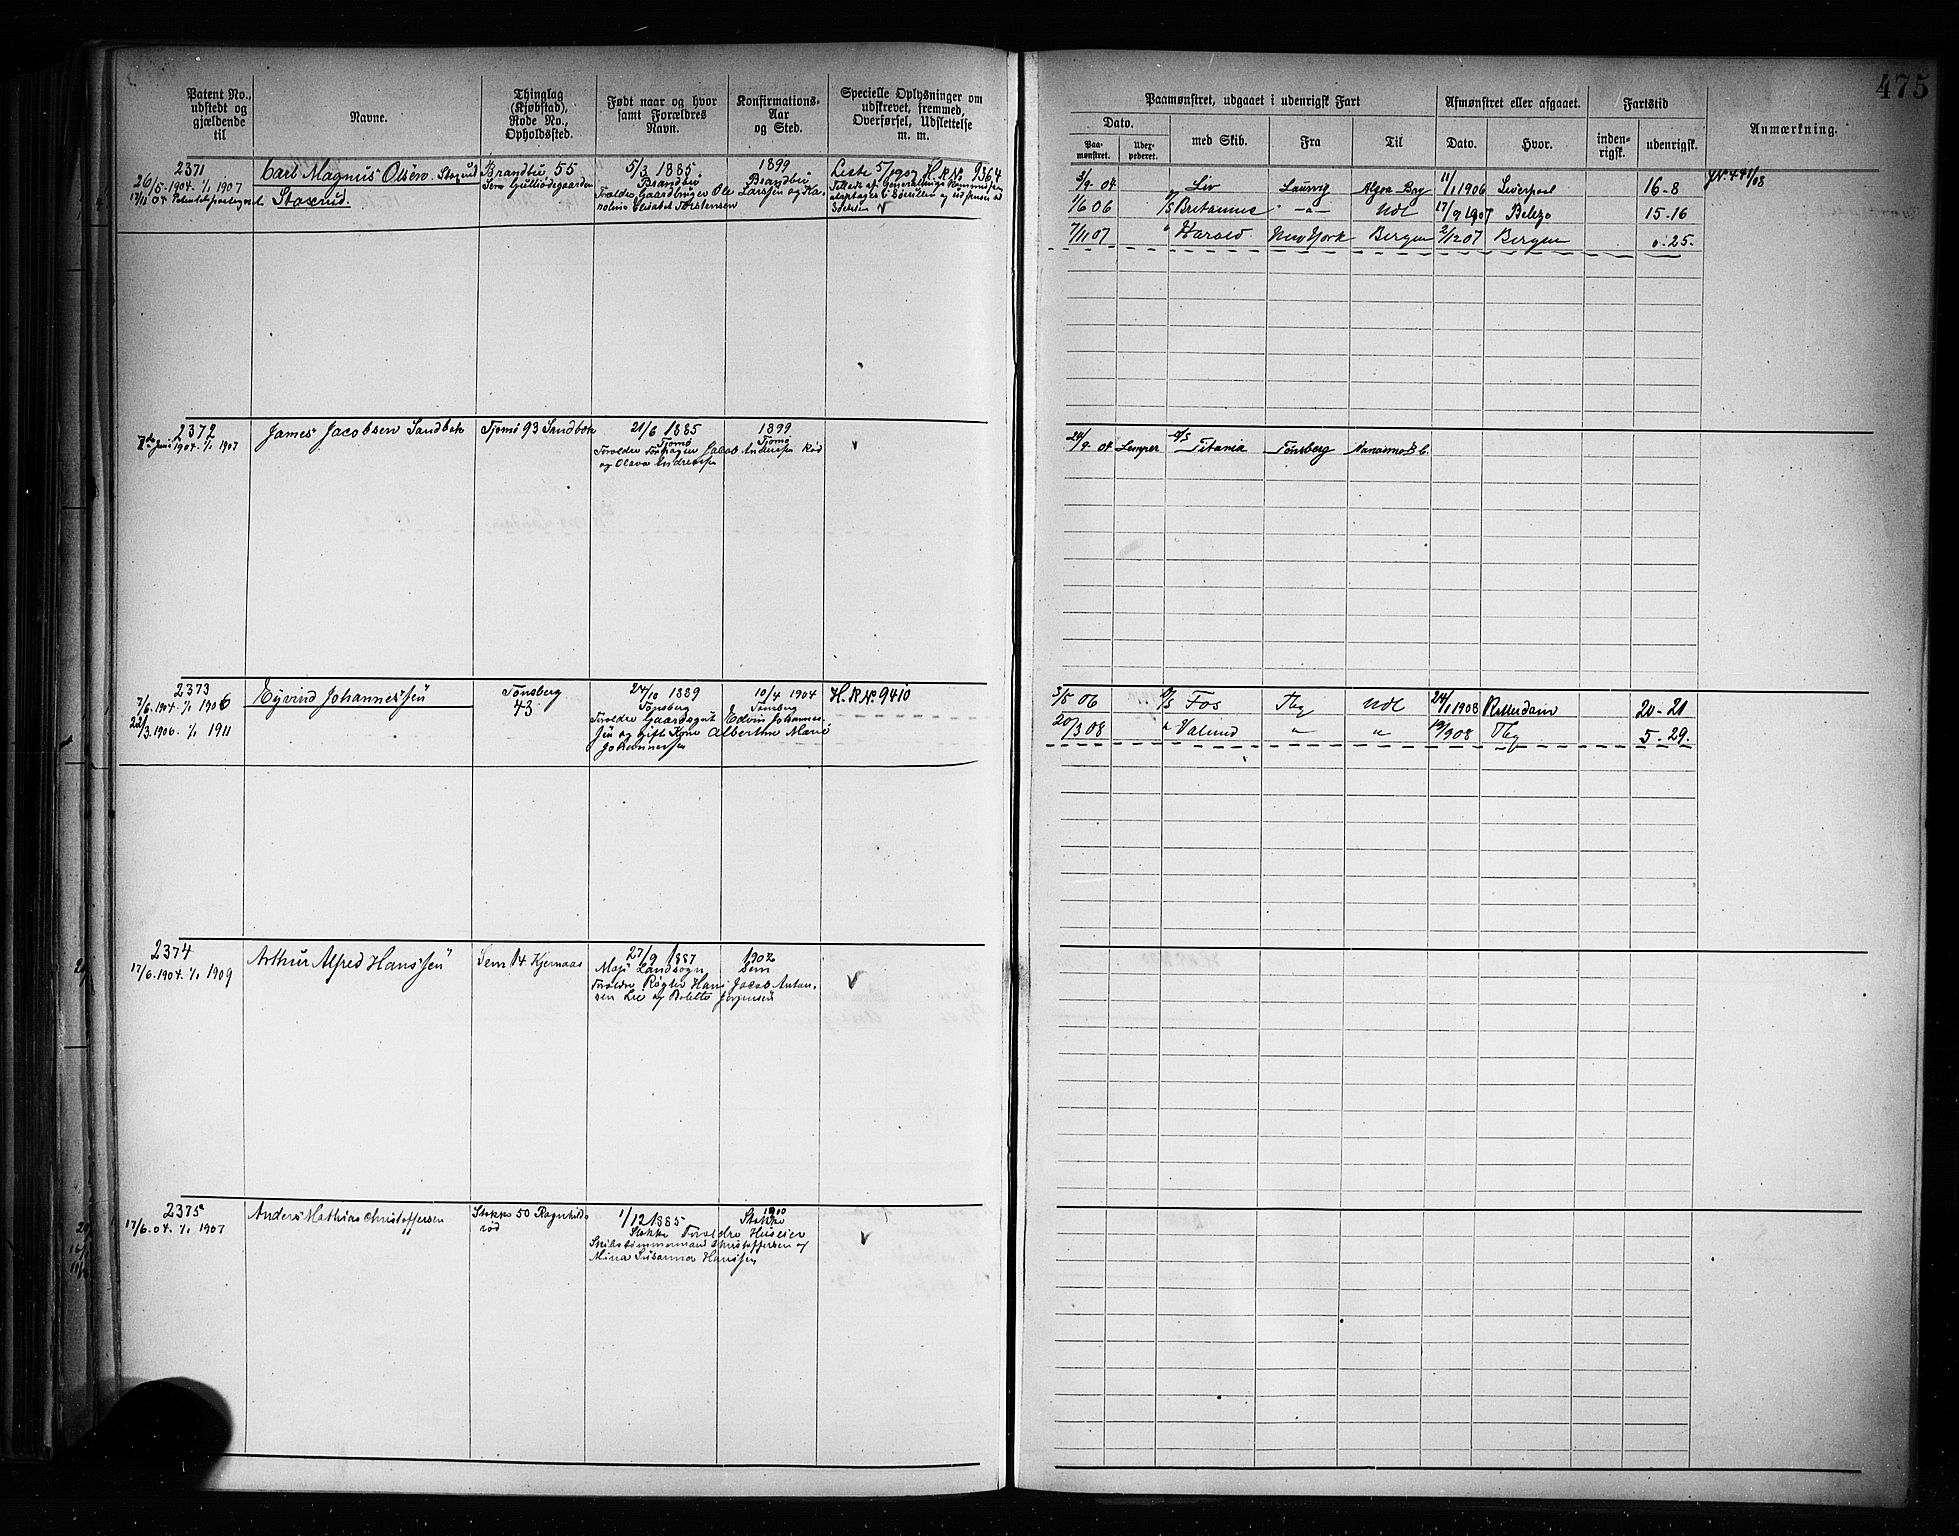 475
Patent No., udstedt og gjældende til
Navne.
Thinglag (Kjøbstad), Rode No., Opholdssted.
Født naar og hvor samt Forældres Navn.
Konfirmations-Aar og Sted.
Specielle Oplysninger om udskrevet, fremmed, Overførsel, Udslettelse m. m.
Paamønstret, udgaaet i udenrigsk Fart
Afmønstret eller afgaaet.
Fartstid
Anmærkning.
Dato.
Paa-mønstret.
med Skib.
Fra
Til
Dato.
Hvor.
inden-rigsk.
udenrigsk.
2371
26/5-1904. 1/1 1907
17/11 04
Carl Magnus Olsen
Brandbu 55
5/3 1885.
Brandbu
Forældre Gaardbruger Ole Larssen og Ka-
Elisabet Torstensen
1899
Brandbu
Liste 5/1909 H.R.No. 9364
3/9 04 Liv Laurvig Algoa Bay 11/1 1906 Liverpool 16-8
J.N. 441/08
1/6 06 Udl 17/9 1907 15-16
7/11 07 " Harald New York Bergen 2/12 07 Bergen 0.25.
2372
1904. 1/1 1907
James Jacobsen Sandbek
Tjømø 93 Sandbek
21/6 1885
Tjømø
Forældre Jacob Anderssen Rød
og Olava Andreassen
1899
Tjømø
24/9 04 Titania Tønsberg
2373
7/6.1904. 1/1 1906
22/3.1906. 1/1 1911
Eyvind Johannessen
Tønsberg
43
24/10 1889
Tønsberg
Forældre Gaardsgut Edvin Johannes-
sen og gifte Kone Albertine Marie
Johannessen
10/4 1904
Tønsberg
H.R.No. 9410
3/5 06 Fos Tbg Udl 24/1 1908 Rotterdam 20-21
20/3 08 " Valund " " 19/9 08 Tbg 5-29.
2374
17/6.1904. 1/1 1909
Arthur Alfred Hanssen
Sem 14 Kjernaas
27/9 1887
Moss Landsogn
Forældre Røgter Hans Jacob Anton-
sen Lie og Bolette Jørgensen
1902
Sem
2375
17/6.04. 1/1 1907
Anders Mathias Christoffersen
Stokke 50 Ragnhilds
rød
1/12 1885
Stokke Forældre Huseier
Skibstømmermand Christoffersen og
Mina Susanna Hanssen
1900
Stokke